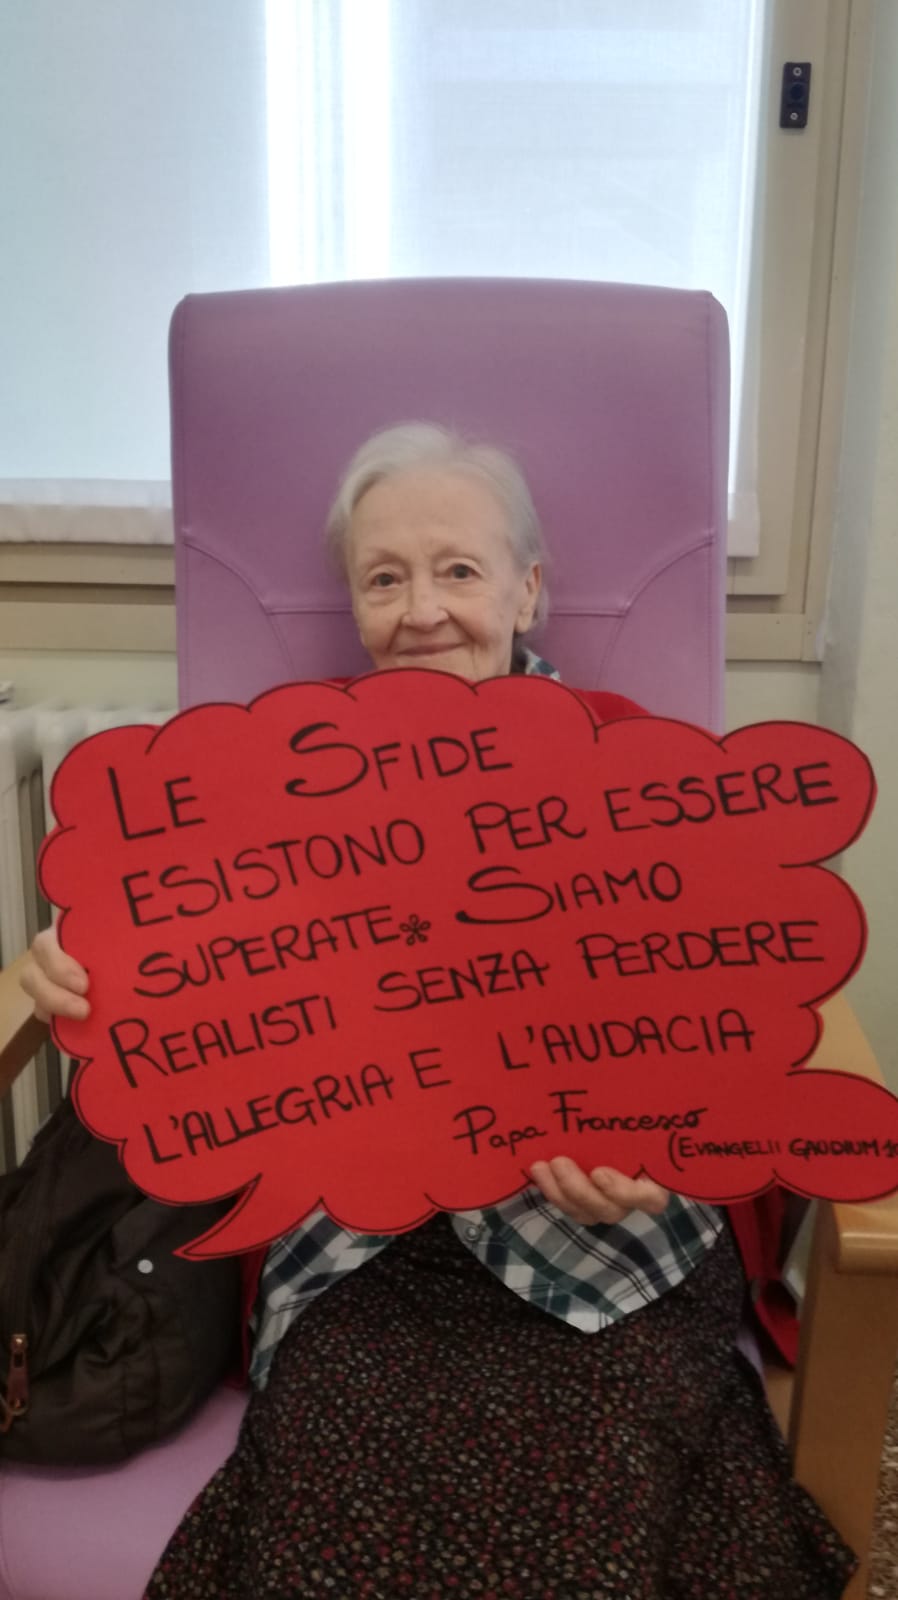 LE SFIDE
ESISTONO PER ESSERE
SUPERATE. SIAMO
REALISTI SENZA PERDERE
L'ALLEGRIA E L'AUDACIA
Papa Francesco
(EVANGELII GAUDIUM